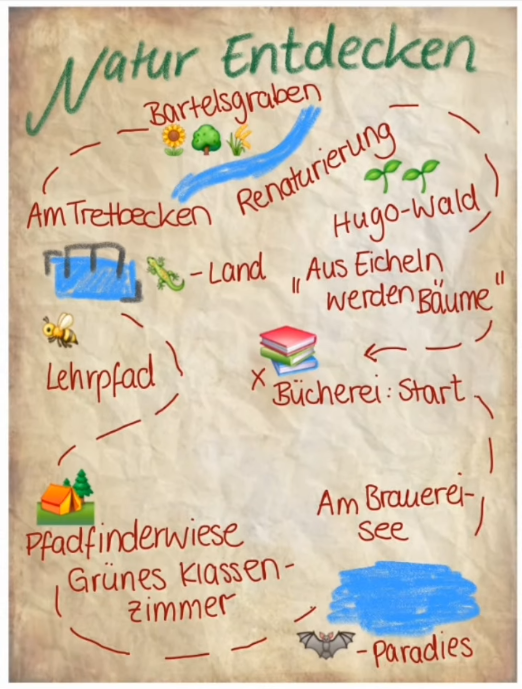 Natur Entdecken
Bartelsgraben
Renaturierung
Am Tretbecken
Hugo-Wald
-Land
"Aus Eicheln
werden Bäume"
Lehrpfad
x Bücherei: Start
Am Brauerei-
see
Pfadfinderwiese
Grünes Klassen-
zimmer
-Paradies